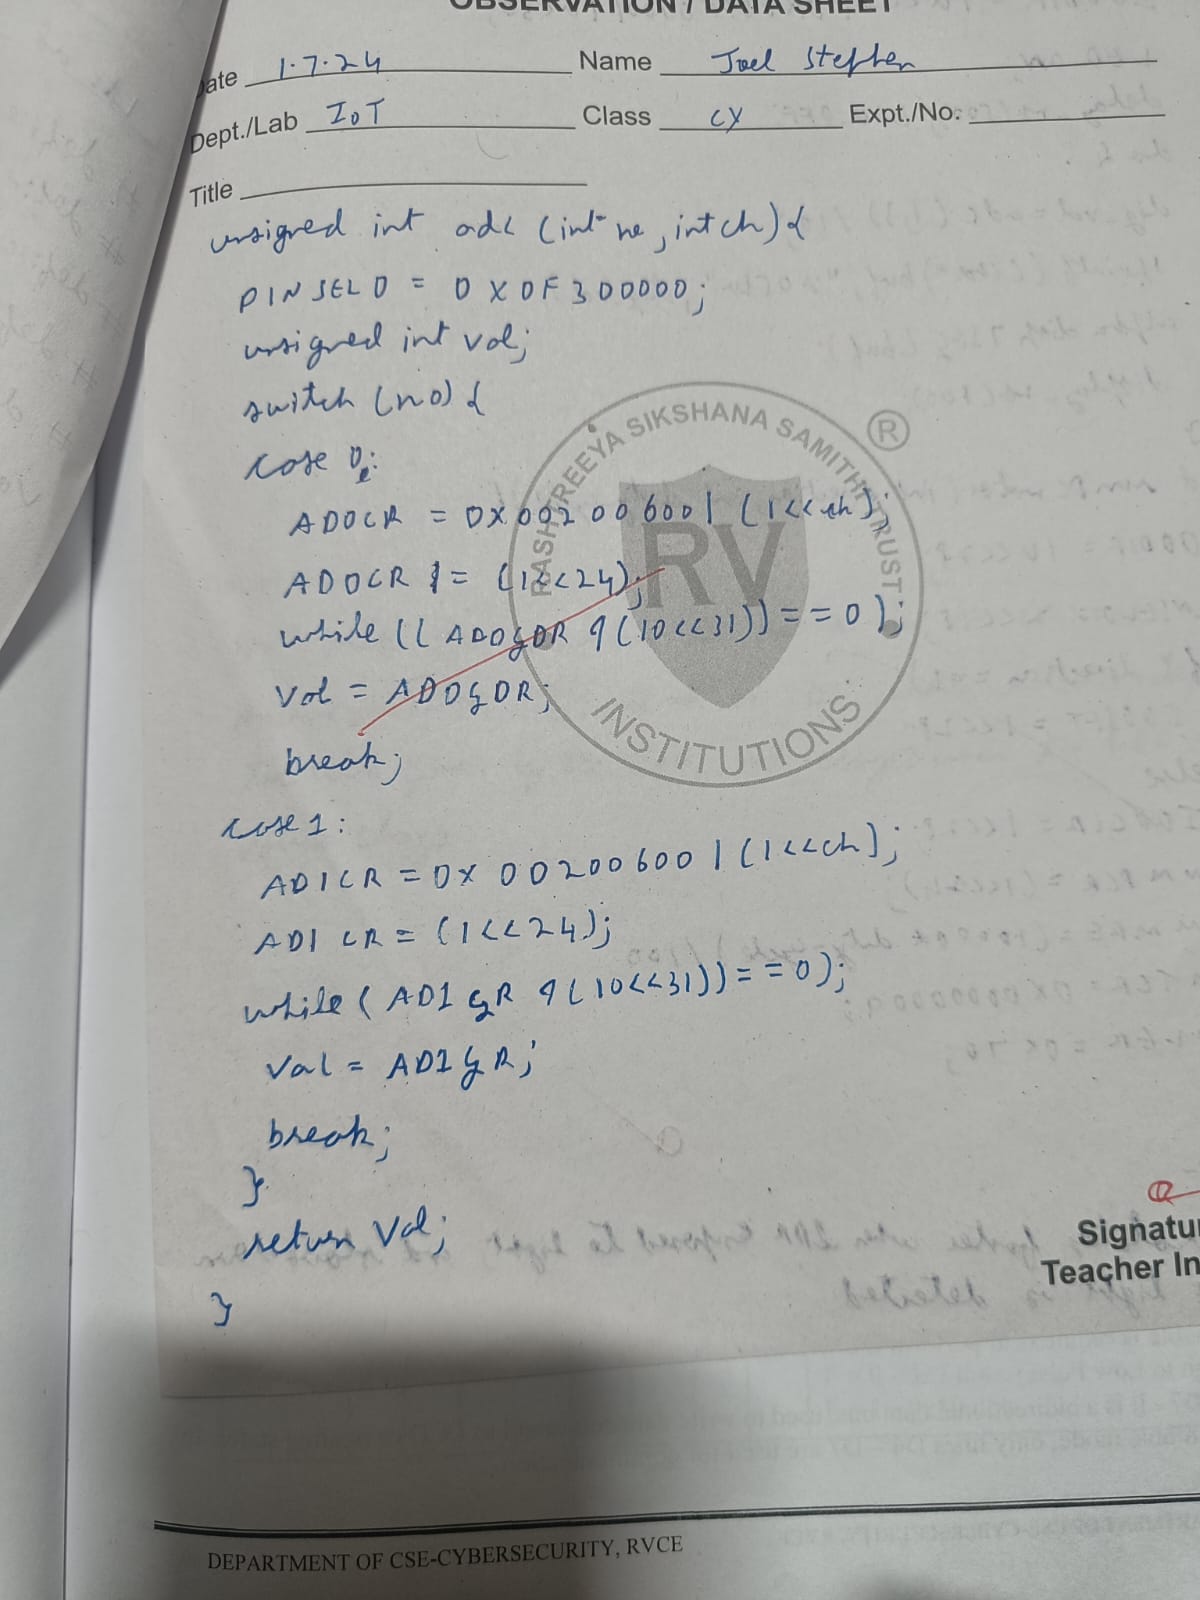 OBSERVATION / DATA SHEET
Date 1.7.24 Name Joel Stephen
Dept./Lab IoT Class CY Expt./No.
Title
unsigned int adc (int no, int ch) {
PINSEL0 = 0X0F300000;
unsigned int vol;
switch (no) {
case 0:
AD0CR = 0X00200600 | (1<<ch);
AD0CR |= (1<<24);
while (( AD0GDR & (10<<31)) == 0 );
Vol = AD0GDR;
break;
case 1:
AD1CR = 0X 00200600 | (1<<ch);
AD1 CR = (1<<24);
while ( AD1 GR & (10<<31)) == 0);
Val = AD1GR;
break;
}
return Val;
}
RASHTREEYA SIKSHANA SAMITHI TRUST
R
RV
INSTITUTIONS
Signatu
Teacher In
DEPARTMENT OF CSE-CYBERSECURITY, RVCE